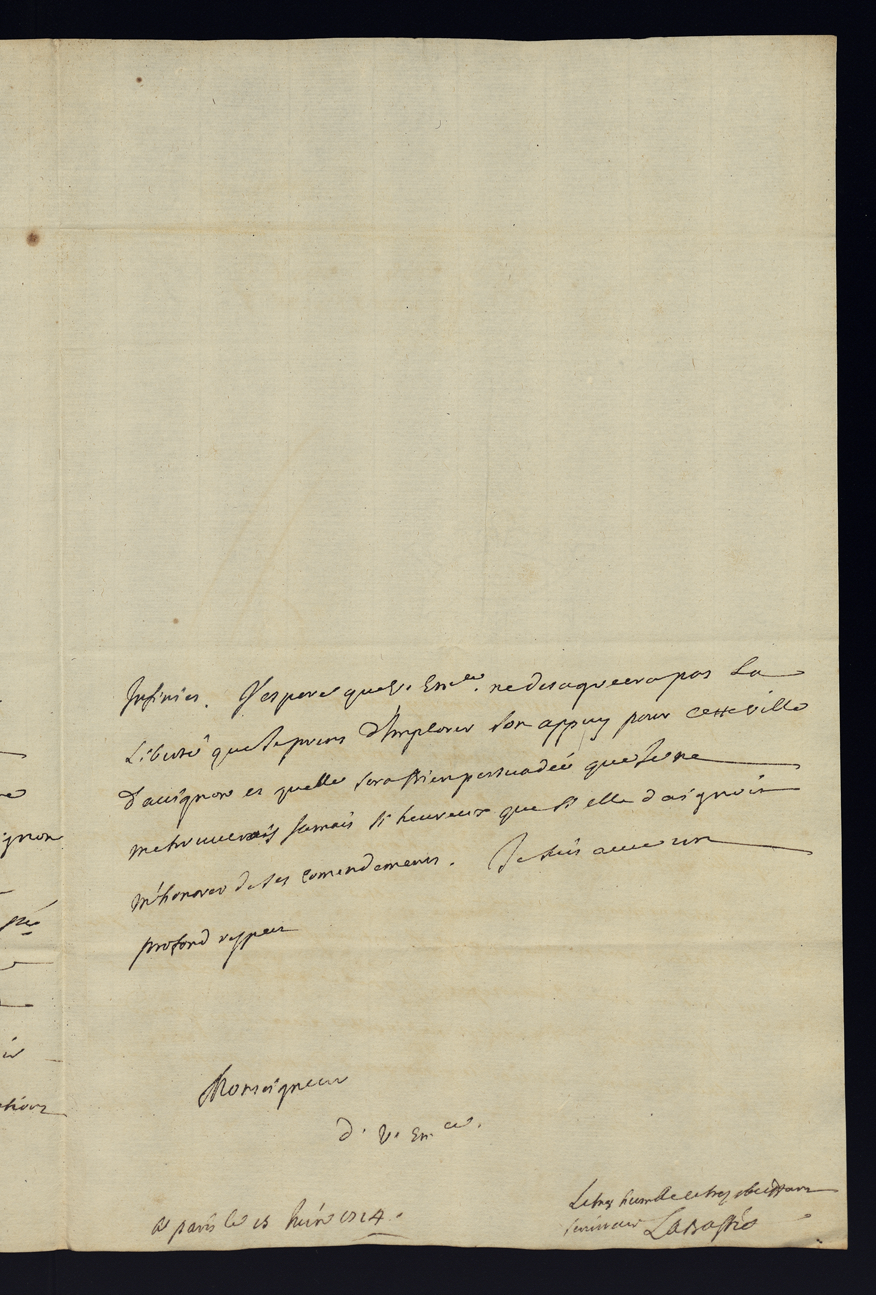 Infinies. J'espere que V. Em.ce ne desagreera pas La
Liberté que Je prens d'Implorer son appuy pour cette ville
d'avignon et quelle sera bien persuadée que Je ne
me trouverais Jamais si heureux que si elle daignoit
m'honorer de ses comendements. Je suis avec un
profond respect
Monseigneur
d. V. Em.ce.
Le tres humble et tres obeissant
serviteur
a paris le 13 Juin 1724.
ignon